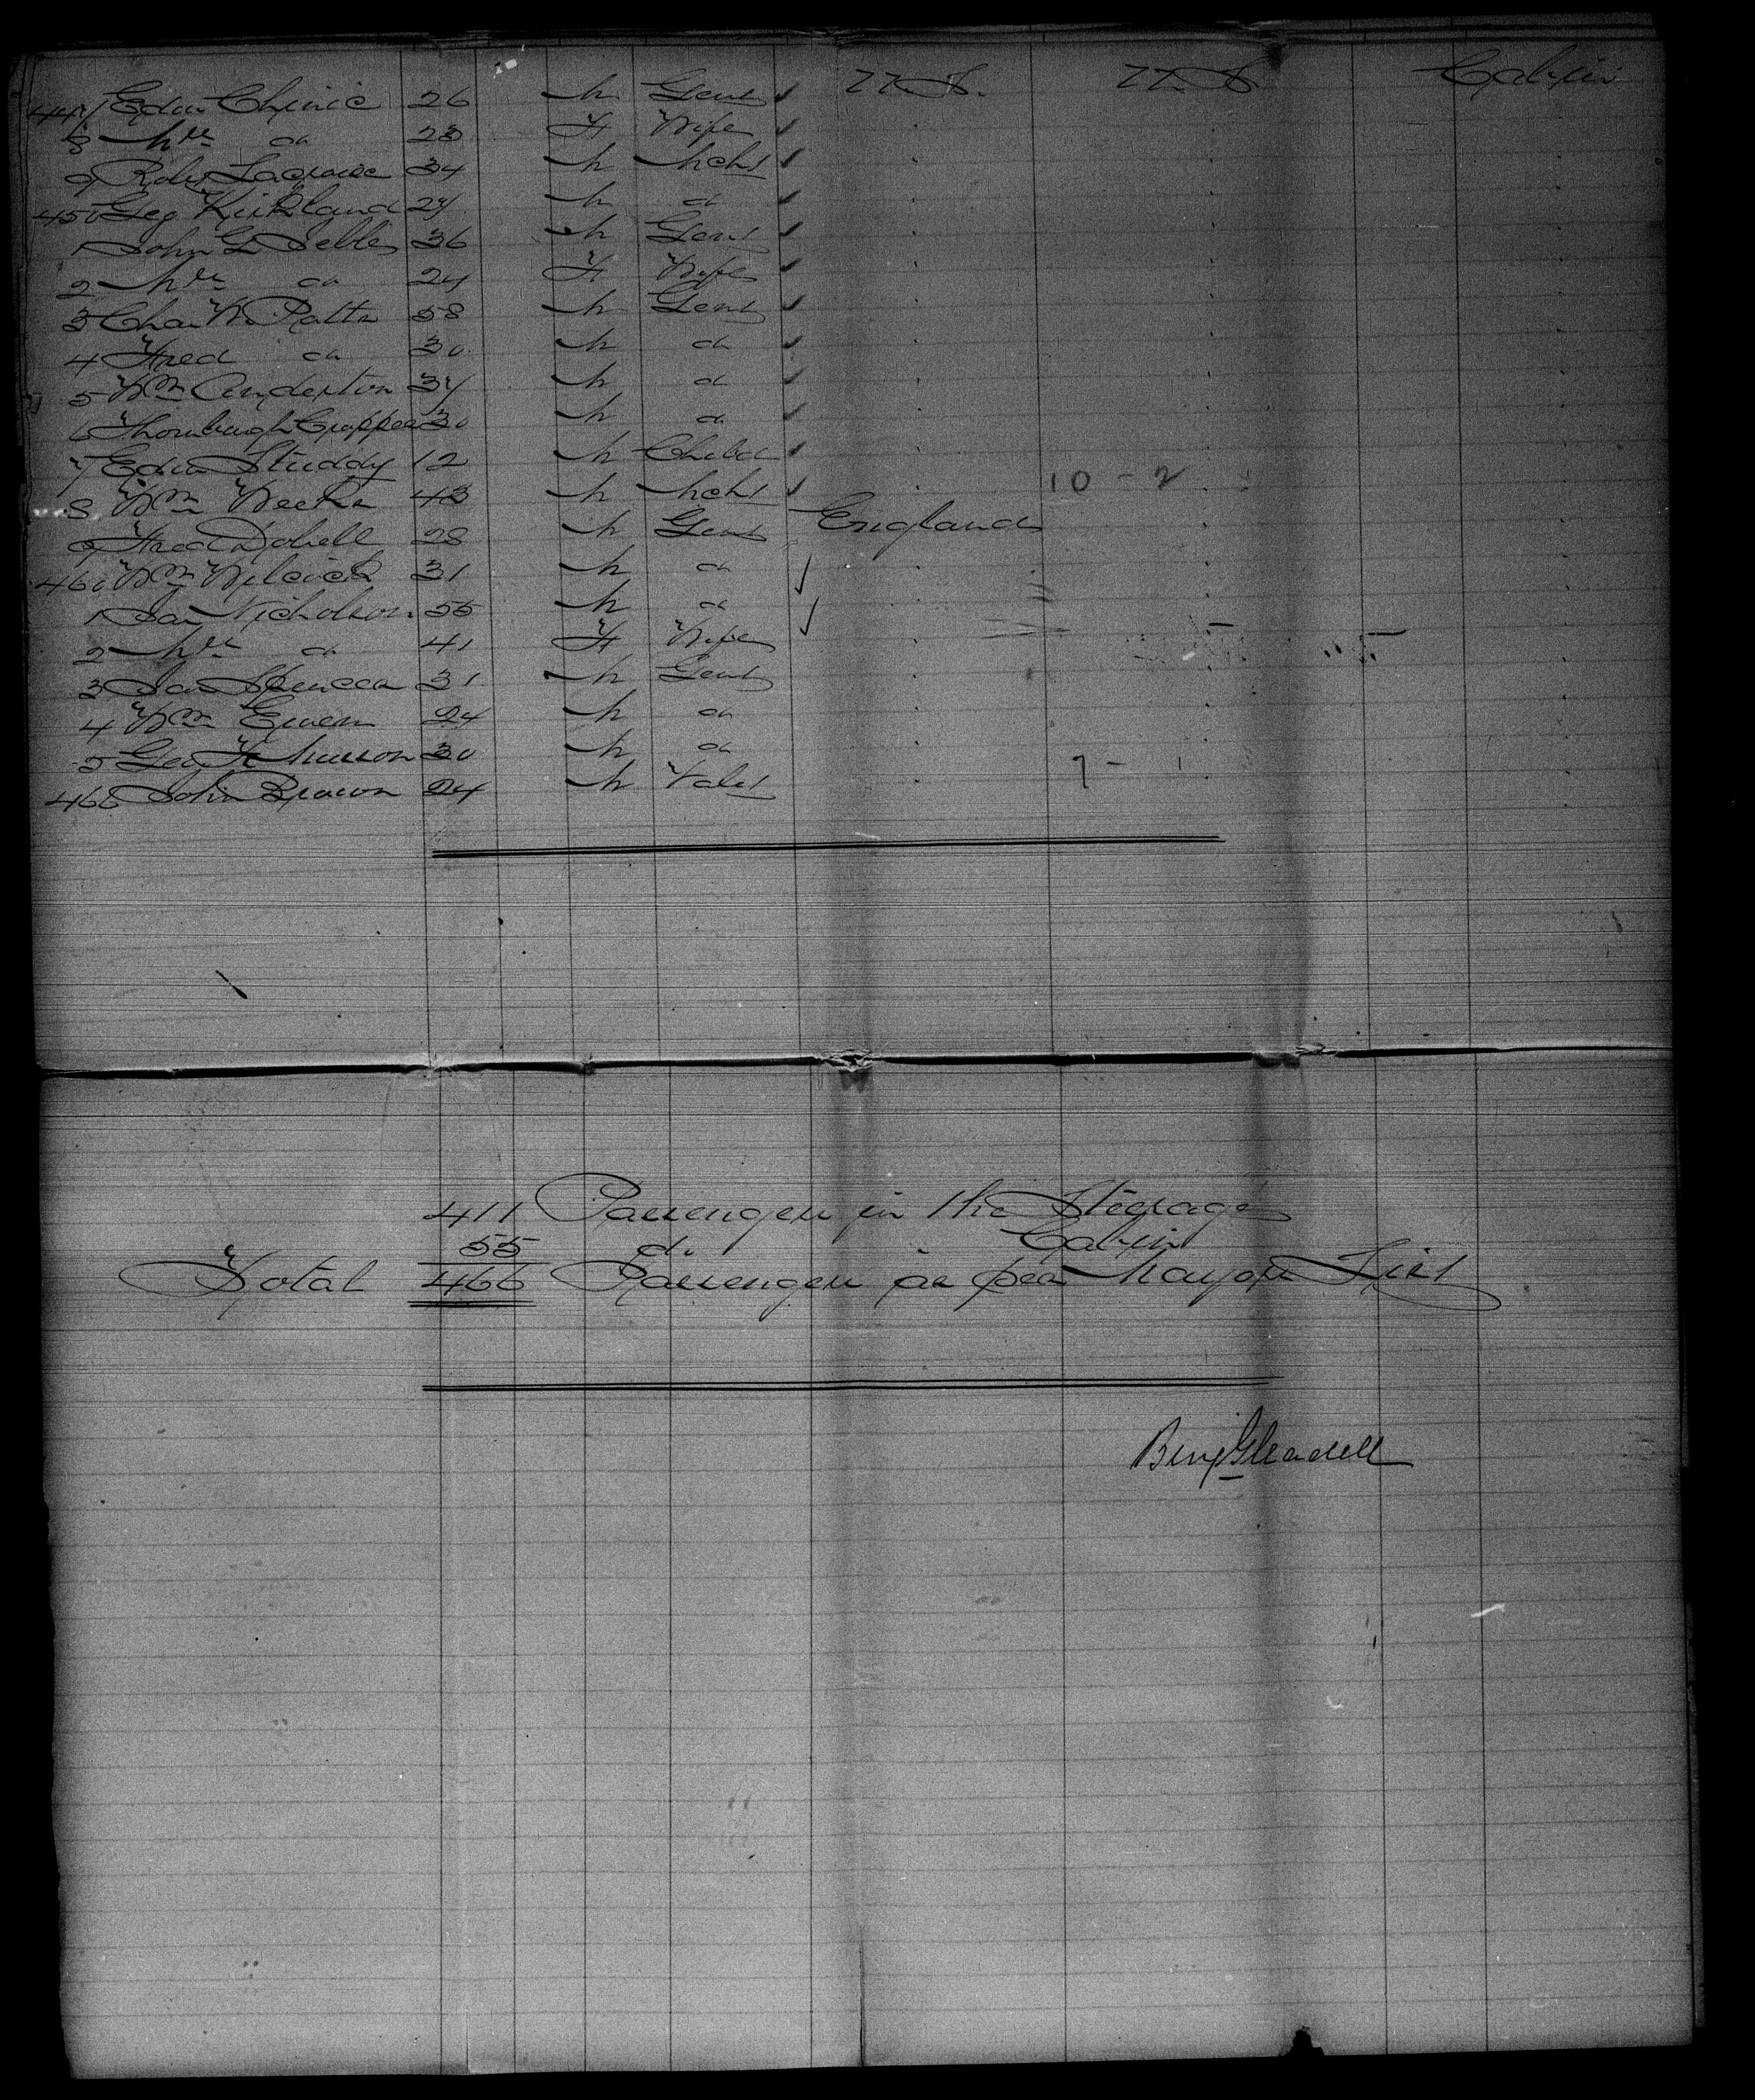 447 Edw Chinic 26 M Gent U.S. U.S. Cabin
8 Mrs do 23 F Wife
9 Robt 34 M Mcht
450 Geo Kirkland 27 M do
1 John G 36 M Gent
2 Mrs do 24 F Wife
3 Chas W. 58 M Gent
4 Fred do 30 M do
5 Wm Anderton 37 M do
6 Thornburgh Cropper 30 M do
7 Edw Studdy 12 M Child
8 Wm Weeks 43 M Mcht 10 - 2
9 Fred Dobell 28 M Gent England
460 Wm 31 M do
1 Jas Nicholson 55 M do
2 Mrs do 41 F Wife
3 Jas Spencer 31 M Gent
4 Wm Ewen 24 M do
5 Geo F 30 M do
466 John Brown 24 M Valet 7 - 1
411 Passengers in the Steerage
55 do Cabin
Total 466 Passengers as per List
Benj Gleadell